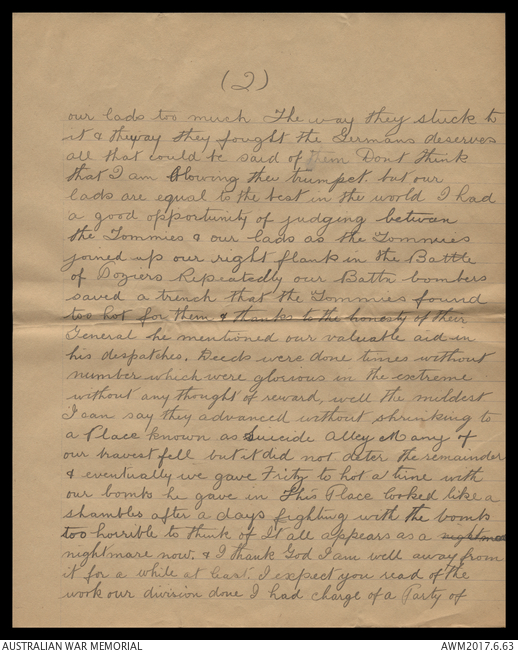 (2)
our lads too much The way they stuck to
it & theway they fought the Germans deserves
all that could be said of them Dont think
that I am blowing their trumpet. but our
lads are equal to the best in the world I had
a good opportunity of judging between
the Tommies & our lads as the Tommies
joined up our right flank in the Battle
of Poziers Repeatedly our Battn bombers
saved a trench that the Tommies found
too hot for them & thanks to the honesty of their
General he mentioned our valuable aid in
his despatches. Deeds were done times without
number which were glorious in the extreme
without any thought of reward, well the mildest
I can say they advanced without shrinking to
a Place known as Suicide Alley Many of
our bravest fell but it did not deter the remainder
& eventually we gave Fritz to hot a time with
our bombs he gave in This Place looked like a
shambles after a days fighting with the bombs
too horrible to think of It all appears as a nightmare
nightmare now. & I thank God I am well away from
it for a while at least. I expect you read of the
work our division done I had charge of a Party of
AUSTRALIAN WAR MEMORIAL
AWM2017.6.63